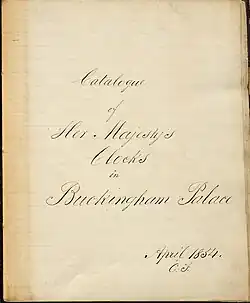 Catalogue
of
Her Majesty's
Clocks
in
Buckingham Palace
April 1854.
C. F.